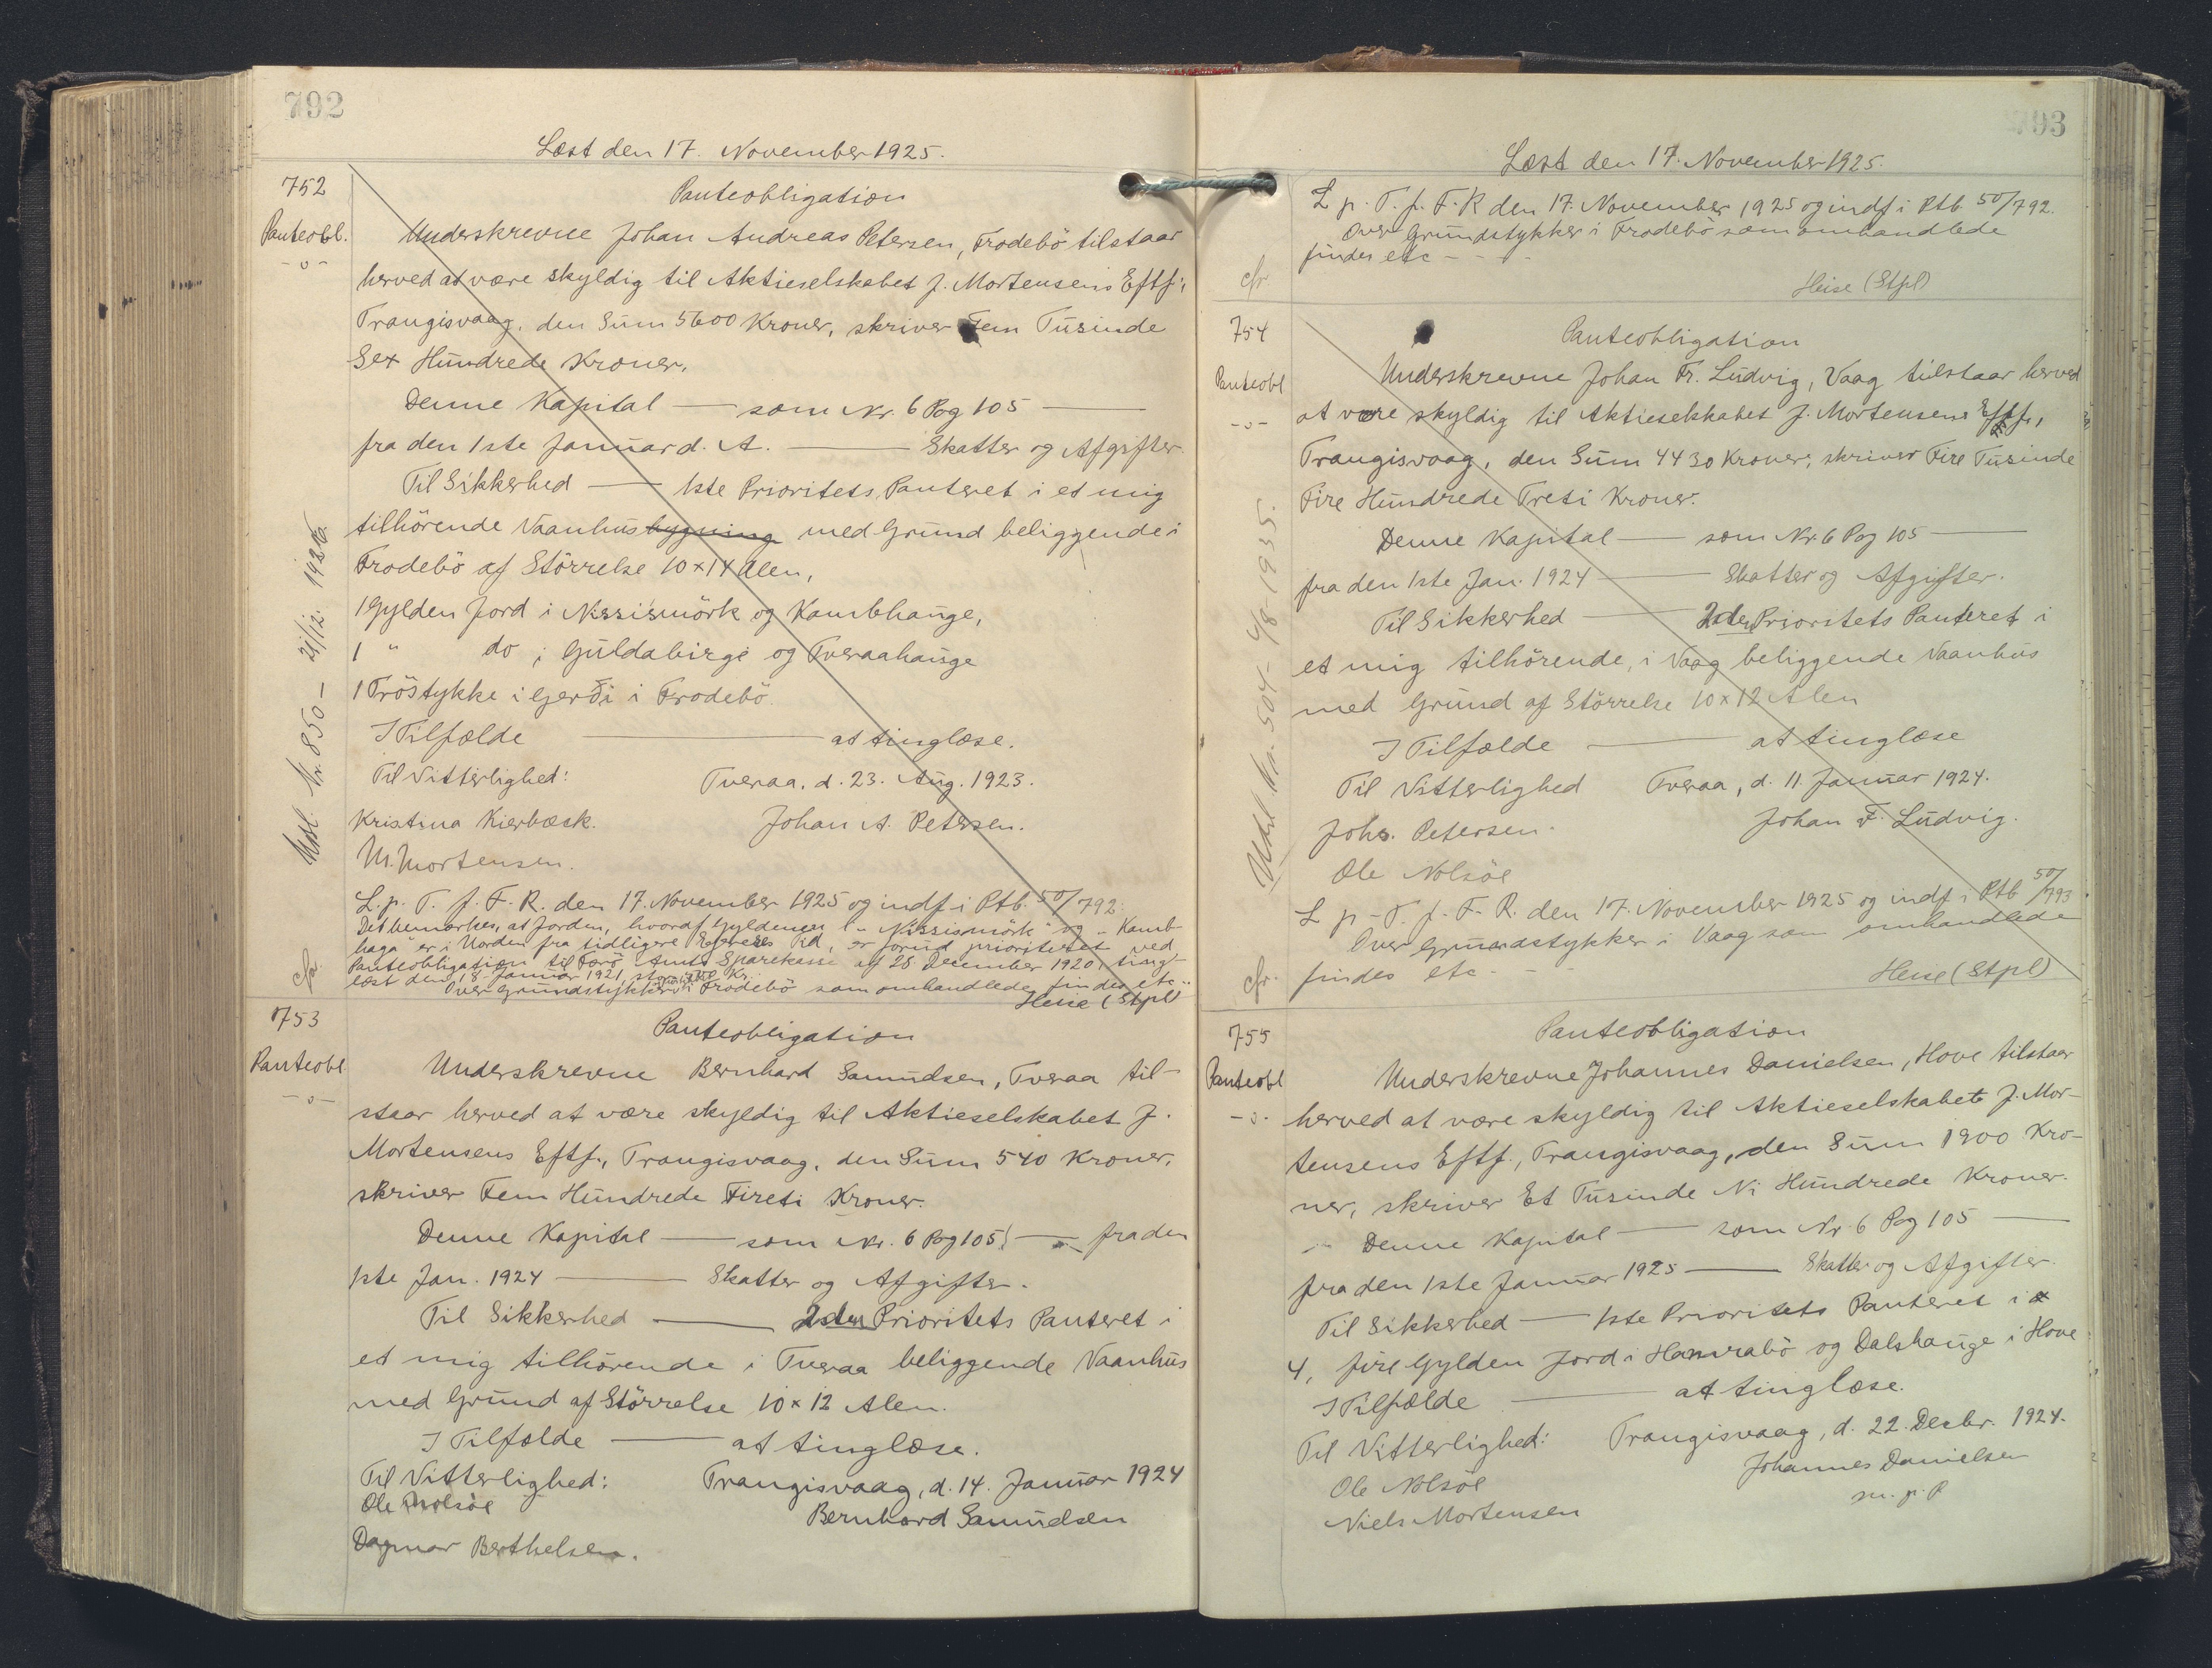 792
Læst den 17. November 1925.
752
Panteobl.
-o-
Panteobligation
Underskrevne Johan Andreas Petersen, Frodebö tilstaar
herved at være skyldig til Aktieselskabet J. Mortensens Eftf.,
Trangisvaag, den Sum 5600 Kroner, skriver Fem Tusinde
Sex Hundrede Kroner.
Denne Kapital — som Nr. 6 Pag 105 —
fra den 1ste Januar d. A. — Skatter og Afgifter.
Til Sikkerhed — 1ste Prioritets Panteret i et mig
tilhörende Vaanhusbygning med Grund beliggende i
Frodebö af Störrelse 10x14 Alen,
1 Gylden Jord i Nissismörk og Kambhauge,
1 " do i Guldabirge og Tveraahauge
1 Tröstykke i Gerði i Frodebö.
I Tilfælde — at tinglæse.
Til Vitterlighed: Tveraa, d. 23. Aug. 1923.
Kristina Kierbæck. Johan A. Petersen.
M. Mortensen.
L. p. T. f. F. R. den 17. November 1925 og indf i Ptb. 50/792.
Det bemærkes, at Jorden, hvoraf Gyldenen i "Nissismörk" og "Kamb-
haga" er i Norden fra tidligere Ejeres Tid, er forud prioriteret ved
Panteobligation til Færö Amts Sparekasse af 28 December 1920, ting-
læst den 18 Januar 1921, stor Kr.
Over Grundstykker i Frodebö som omhandlede findes etc -
Heise (Stpl)
Udsl. Nr. 850 - 21/12. 1926.
cfr.
753
Panteobl
-o-
Panteobligation
Underskrevne Bernhard Samuelsen, Tveraa til-
staar herved at være skyldig til Aktieselskabet J.
Mortensens Eftf., Trangisvaag, den Sum 540 Kroner,
skriver Fem Hundrede Fireti Kroner.
Denne Kapital — som Nr. 6 Pag 105 — fra den
1ste Jan. 1924 — Skatter og Afgifter.
Til Sikkerhed — 2den Prioritets Panteret i
et mig tilhörende i Tveraa beliggende Vaanhus
med Grund af Störrelse 10 x 12 Alen.
I Tilfælde — at tinglæse.
Til Vitterlighed: Trangisvaag, d. 14. Januar 1924
Ole Nolsöe
Bernhard Samuelsen
Dagmar Berthelsen.
793
Læst den 17. November 1925.
L p. T. f. F. R den 17. November 1925 og indf i Ptb. 50/792.
Over Grundstykker i Frodebö som omhandlede
findes etc - - -
cfr.
Heise (Stpl)
754
Panteobl
-o-
Panteobligation
Underskrevne Johan Fr. Ludvig, Vaag tilstaar herved
at være skyldig til Aktieselskabet J. Mortensens Eftf.,
Trangisvaag, den Sum 4430 Kroner, skriver Fire Tusinde
Fire Hundrede Treti Kroner.
Denne Kapital — som Nr. 6 Pag 105 —
fra den 1ste Jan. 1924 — Skatter og Afgifter.
Til Sikkerhed — 2den Prioritets Panteret i
et mig tilhörende, i Vaag beliggende Vaanhus
med Grund af Störrelse 10x12 Alen
I Tilfælde — at tinglæse
Til Vitterlighed Tveraa, d. 11. Januar 1924.
Johs. Petersen. Johan F. Ludvig.
Ole Nolsöe
L p. T. f. F. R. den 17. November 1925 og indf i Ptb 50/793
Over Grundstykker i Vaag som omhandlede
findes etc - - -
Heise (Stpl)
Udsl. Nr. 504 - 4/8 - 1935.
cfr.
755
Panteobl
-o-
Panteobligation
Underskrevne Johannes Danielsen, Hove tilstaar
herved at være skyldig til Aktieselskabet J. Mor-
tensens Eftf., Trangisvaag, den Sum 1900 Kro-
ner, skriver Et Tusinde Ni Hundrede Kroner.
Denne Kapital — som Nr. 6 Pag 105 —
fra den 1ste Januar 1925 — Skatter og Afgifter.
Til Sikkerhed — 1ste Prioritets Panteret i
4, fire Gylden Jord i Hamrabö og Dalshauge i Hove
I Tilfælde — at tinglæse.
Til Vitterlighed: Trangisvaag, d. 22. Decbr. 1924.
Ole Nolsöe Johannes Danielsen
Niels Mortensen m. p. P